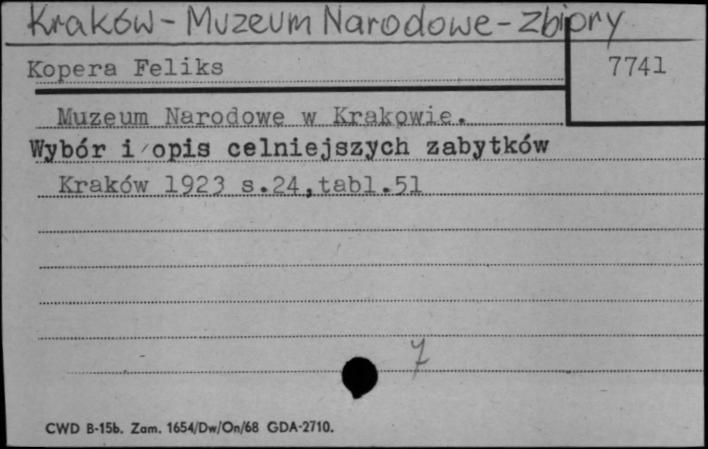 Kraków - Muzeum Narodowe - zbiory
Kopera Feliks
7741
Muzeum Narodowe w Krakowie.
Wybór i opis celniejszych zabytków
Kraków 1923 s.24,tabl.51
7
CWD B-15b. Zam. 1654/Dw/On/68 GDA-2710.